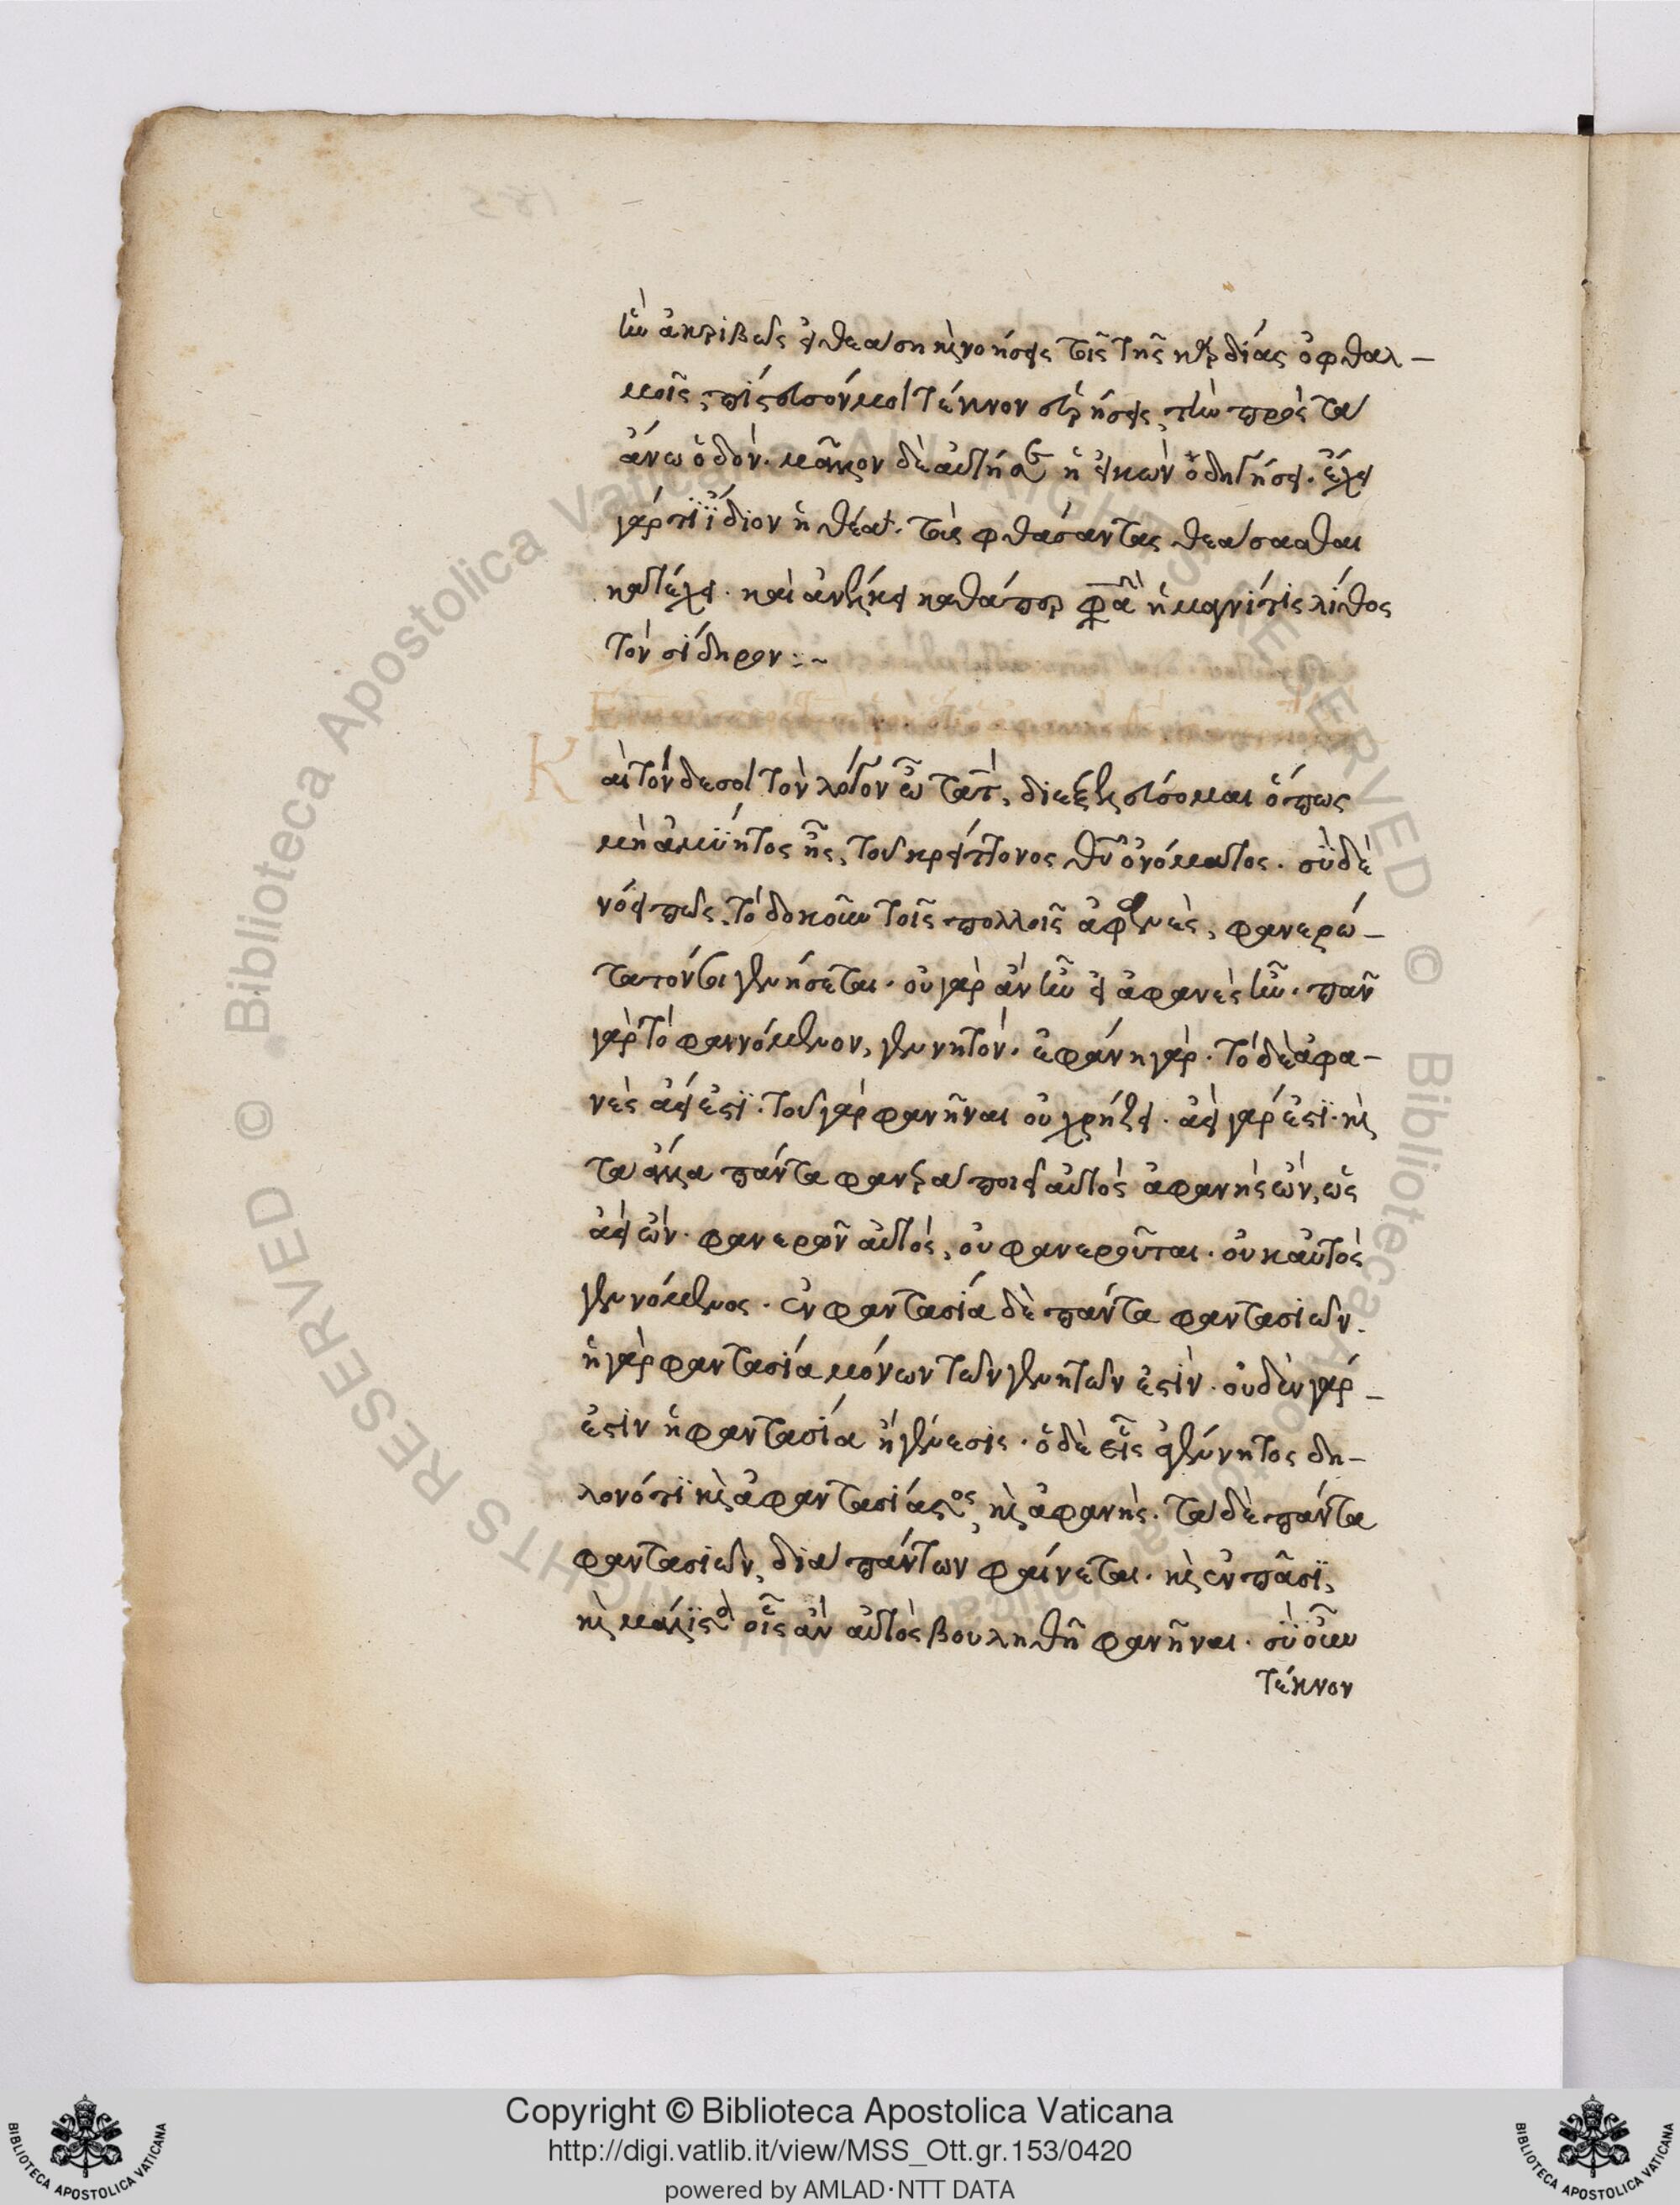 ἣν ἀκριβῶς εἰ θεάση καὶ νοήσεις τοῖς τῆς καρδίας ὀφθαλ-
μοῖς, πίστευσόν μοι τέκνον εὑρήσεις τὴν πρὸς τὰ
ἄνω ὁδόν. μᾶλλον δὲ αὐτή σε ἡ εἰκὼν ὁδηγήσει. ἔχει
γάρ τι ἴδιον ἡ θέα. τοὺς φθάσαντας θεάσασθαι
κατέχει. καὶ ἀνέλκει καθάπερ φασὶ ἡ μαγνίτις λίθος
τὸν σίδηρον :~
Κ
αὶ τόνδε σοι τὸν λόγον ὦ τὰτ, διεξελεύσομαι ὅπως
μὴ ἀμύητος ἦς, τοῦ κρείττονος θυ ὀνόματος. σὺ δὲ
νόει πῶς, τὸ δοκοῦν τοῖς πολλοῖς ἀφανὲς, φανερώ-
τατόν σοι γενήσεται. οὐ γὰρ ἂν ἦν εἰ ἀφανὲς ἦν. πᾶν
γὰρ τὸ φαινόμενον, γεννητόν. ἐφάνη γάρ. τὸ δὲ ἀφα-
νὲς ἀεί ἐστι. τοῦ γὰρ φανῆναι οὐ χρήζει. ἀεὶ γάρ ἐστι. καὶ
τὰ ἄλλα πάντα φανερὰ ποιεῖ αὐτὸς ἀφανὴς ὢν, ὡς
ἀεὶ ὤν. φανερῶν αὐτὸς, οὐ φανεροῦται. οὐκ αὐτὸς
γεννόμενος. ἐν φαντασία δὲ πάντα φαντασιῶν.
ἡ γὰρ φαντασία μόνων τῶν γεννητῶν ἐστίν. οὐδὲν γάρ-
ἐστιν ἡ φαντασία ἢ γένεσις. ὁ δὲ εἷς ἀγέννητος δη-
λονότι καὶ ἀφαντασίαστος, καὶ ἀφανής. τὰ δὲ πάντα
φαντασιῶν, διὰ πάντων φαίνεται. καὶ ἐν πᾶσι,
καὶ μάλιστα οἷς ἂν αὐτὸς βουληθῆ φανῆναι. σὺ οὖν
τέκνον
Copyright © Biblioteca Apostolica Vaticana
http://digi.vatlib.it/view/MSS_Ott.gr.153/0420
powered by AMLAD·NTT DATA